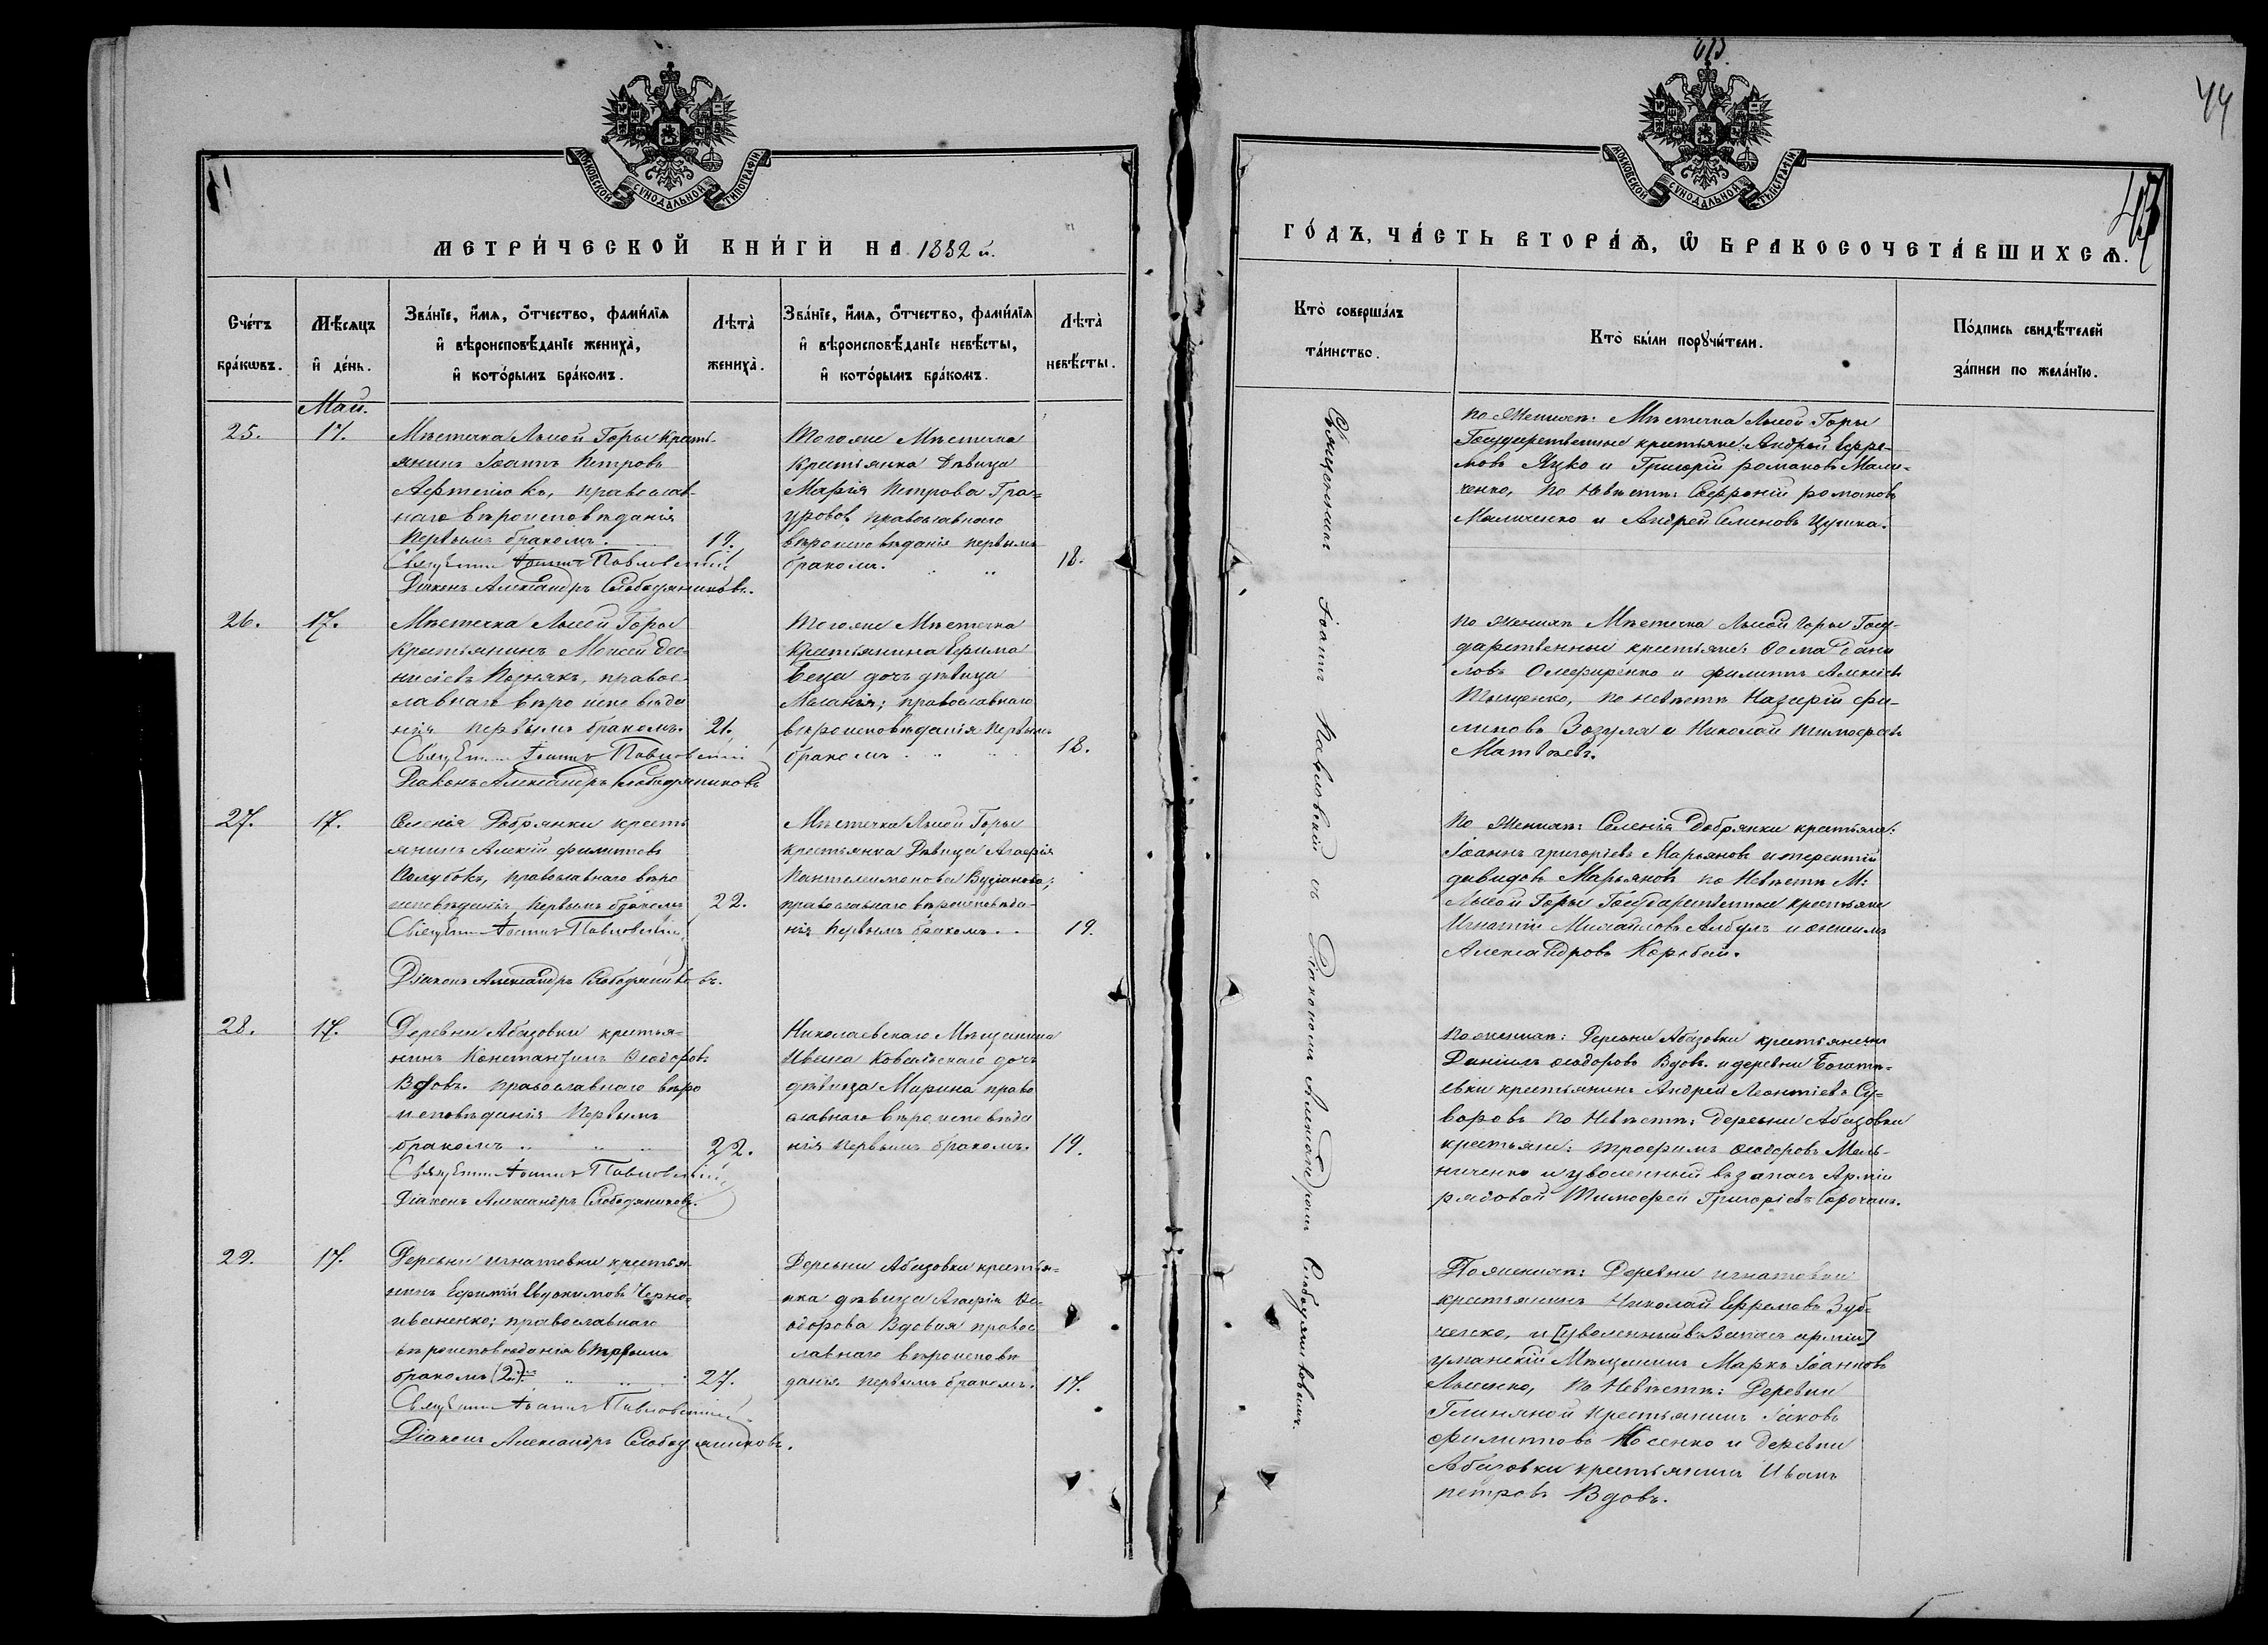 МОСКОВСКОЙ СѴНОДАЛЬНОЙ ТИПОГРАФІИ.
МЕТРИ́ЧЕСКОЙ КНИ́ГИ НА 1882 й.
Сче́тъ бра́кѡвъ.
Мѣ́сяцъ и҆ де́нь.
Зва́нїе, и҆́мѧ, ѻ҆́тчество, фами́лїѧ
и҆ вѣроисповѣ́данїе жениха̀,
и҆ кото́рымъ бра́комъ.
Лѣта̀ жениха̀.
Зва́нїе, и҆́мѧ, ѻ҆́тчество, фами́лїѧ
и҆ вѣроисповѣ́данїе невѣ́сты,
и҆ кото́рымъ бра́комъ.
Лѣта̀ невѣ́сты.
Май.
25.
17.
Мѣстечка Лысой Горы кресть-
янинъ Іоаннъ Петровъ
православ-
наго вѣроисповѣданія
первымъ бракомъ.
19.
Священникъ Іоаннъ Павловскій
Діаконъ Александръ Слободяниковъ.
Тогоже Мѣстечка
крестьянка дѣвица
Марія Петрова
православнаго
вѣроисповѣданія первымъ
бракомъ.
18.
26.
17.
Мѣстечка Лысой Горы
крестьянинъ Моисей Део-
нисіевъ Познякъ, правос-
лавнаго вѣроисповѣда
нія первымъ бракомъ.
21.
Священникъ Іоаннъ Павловскій
Діаконъ Александръ Слободяниковъ
Тогоже Мѣстечка
крестьянина Ефима
дочь дѣвица
Меланія; православнаго
вѣроисповѣданія первымъ
бракомъ
18.
27.
17.
Селенія Добрянки кресть
янинъ Алексій Филиповъ
Голубокъ, православнаго вѣро
исповѣданія первымъ бракомъ
22.
Священникъ Іоаннъ Павловскій
Діаконъ Александръ Слободяниковъ.
Мѣстечка Лысой Горы
крестьянка дѣвица Агафія
Пантелеимонова
православнаго вѣроисповѣда-
нія первымъ бракомъ.
19.
28.
17.
Деревни Абазовки крестья-
нинъ Константинъ Ѳеодоровъ
Вдовъ. православнаго вѣро
исповѣданія первымъ
бракомъ
22.
Священникъ Іоаннъ Павловскій
Діаконъ Александръ Слободяниковъ.
Николаевскаго Мѣщанина
Ивана Ковальскаго дочь
дѣвица Марина право
славнаго вѣроисповѣда
нія первымъ бракомъ.
19.
29.
17.
Деревни Игнатовки крестья
нинъ Ефимій Евдокимовъ Черно-
иваненко; православнаго
вѣроисповѣданія вторымъ
бракомъ (2.)
27.
Священникъ Іоаннъ Павловскій
Діаконъ Александръ Слободяниковъ.
Деревни Абазовки крестьян-
нка дѣвица Агафія Ѳе-
одорова Вдовая правос
лавнаго вѣроисповѣ
данія первымъ бракомъ.
17.
44
МОСКОВСКОЙ СѴНОДАЛЬНОЙ ТИПОГРАФІИ.
ГО́ДЪ, ЧА́СТЬ ВТОРА́Ѧ, Ѡ҆ БРАКОСОЧЕТА́ВШИХСѦ.
Кто̀ соверша́лъ
та́инство.
Кто̀ бы́ли порꙋчи́тели.
По́дпись свидѣ́телей
за́писи по жела́нїю.
Священникъ Іоаннъ Павловскій съ Діакономъ Александромъ Слободяниковымъ.
По женихѣ: Мѣстечка Лысой Горы
Государственные крестьяне Андрей Ефре-
мовъ Яцко и Григорій Романовъ Мали-
ченко, По невѣстѣ: Софроній Романовъ
Маличенко и Андрей Семеновъ
По женихѣ Мѣстечка Лысой Горы Госу-
дарственные крестьяне Ѳома Дани
ловъ Олефиренко и Филиппъ Алексѣевъ
Тыщенко, по невѣстѣ Назарій Фи-
липовъ Зозуля и Николай Тимофеевъ
Матвѣевъ.
По женихѣ: Селенія Добрянки крестьяне:
Іоаннъ Григоріевъ Марьяновъ и Терентій
Давидовъ Марьяновъ по невѣстѣ М:
Лысой Горы Государственные крестьяне
Игнатій Михайловъ Албулъ и Онисимъ
Александровъ Коробой.
По женихѣ: Деревни Абазовки крестьянинъ
Даніилъ Ѳеодоровъ Вдовъ. и деревни Богата-
евки крестьянинъ Андрей Леонтіевъ Су-
воровъ По невѣстѣ: деревни Абазовки
крестьяне: Трофимъ Ѳеодоровъ Мель-
ниченко и уволенный въ запасъ Арміи
рядовой Тимофей Григоріевъ Сорочанъ.
По женихѣ: Деревни Игнатовки
крестьянинъ Николай Ефремовъ Зуб-
ченко, и [уволенный въ Запасъ арміи]
уманскій Мѣщанинъ Маркъ Іоанновъ
Лысенко, По невѣстѣ: Деревни
Глиняной крестьянинъ Іаковъ
Филиповъ Носенко и деревни
Абазовки крестьянинъ Иванъ
Петровъ Вдовъ.